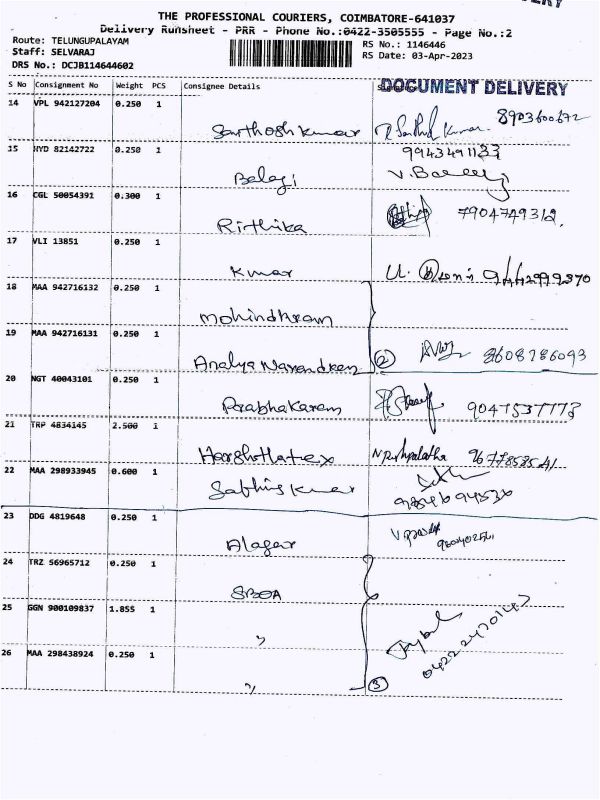 THE PROFESSIONAL COURIERS, COIMBATORE-641037
Delivery Runsheet - PRR - Phone No.:0422-3505555 - Page No.:2
Route: TELUNGUPALAYAM RS No.: 1146446
Staff: SELVARAJ RS Date: 03-Apr-2023
DRS No.: DCJB114644602
S No Consignment No Weight PCS Consignee Details
DOCUMENT DELIVERY
14 VPL 942127204 0.250 1
Santhosh kumar 8903600672
15 HYD 82142722 0.250 1 9943491133
Balaji
16 CGL 50054391 0.300 1
Rithika 7904749312.
17 VLI 13851 0.250 1
Kumar 9442999370
18 MAA 942716132 0.250 1
19 MAA 942716131 0.250 1
2 8608786093
20 NGT 40043101 0.250 1
Prabhakaran 9047537773
21 TRP 4834145 2.500 1
22 MAA 298933945 0.600 1
Kumar 9884694530
23 DDG 4819648 0.250 1
Alagar
24 TRZ 56965712 0.250 1
SBOA
25 GGN 900109837 1.855 1
"
26 MAA 298438924 0.250 1
" 3